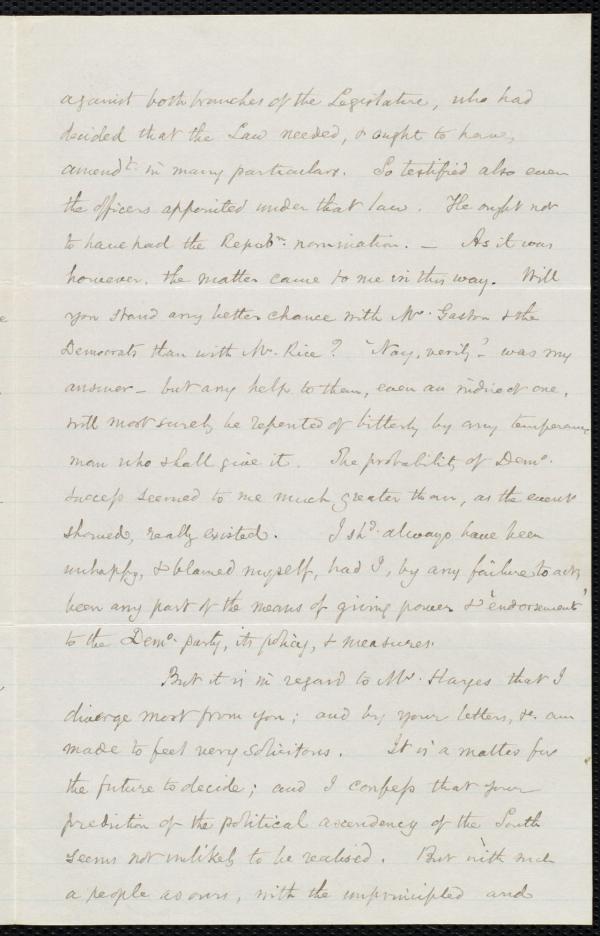 against both branches of the Legislature, who had
decided that the Law needed, & ought to have,
amendt. in many particulars. So testified also even
the officers appointed under that law. He ought not
to have had the Repubn. nomination. — As it was
however, the matter came to me in this way. Will
you stand any better chance with Mr. Gaston & the
Democrats than with Mr. Rice? "Nay, verily" – was my
answer – but any help to them, even an indirect one,
will most surely be repented of bitterly by any temperance
man who shall give it. The probability of Demc.
success seemed to me much greater than, as the event
showed, really existed. I shd. always have been
unhappy, & blamed myself, had I, by any failure to act,
been any part of the means of giving power & "endorsement"
to the Demc. party, its policy, & measures.
But it is in regard to Mr. Hayes that I
diverge most from you; and by your letters, &c. am
made to feel very solicitous. It is a matter for
the future to decide; and I confess that your
prediction of the political ascendency of the South
seems not unlikely to be realised. But with such
a people as ours, with the unprincipled and